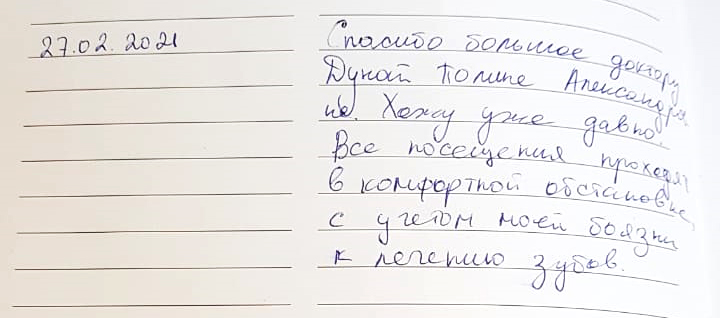 27.02.2021
Спасибо большое доктору
Дунай Полине Александров
не. Хожу уже давно.
Все посещения проходят
в комфортной обстановке,
с учетом моей боязни
к лечению зубов.